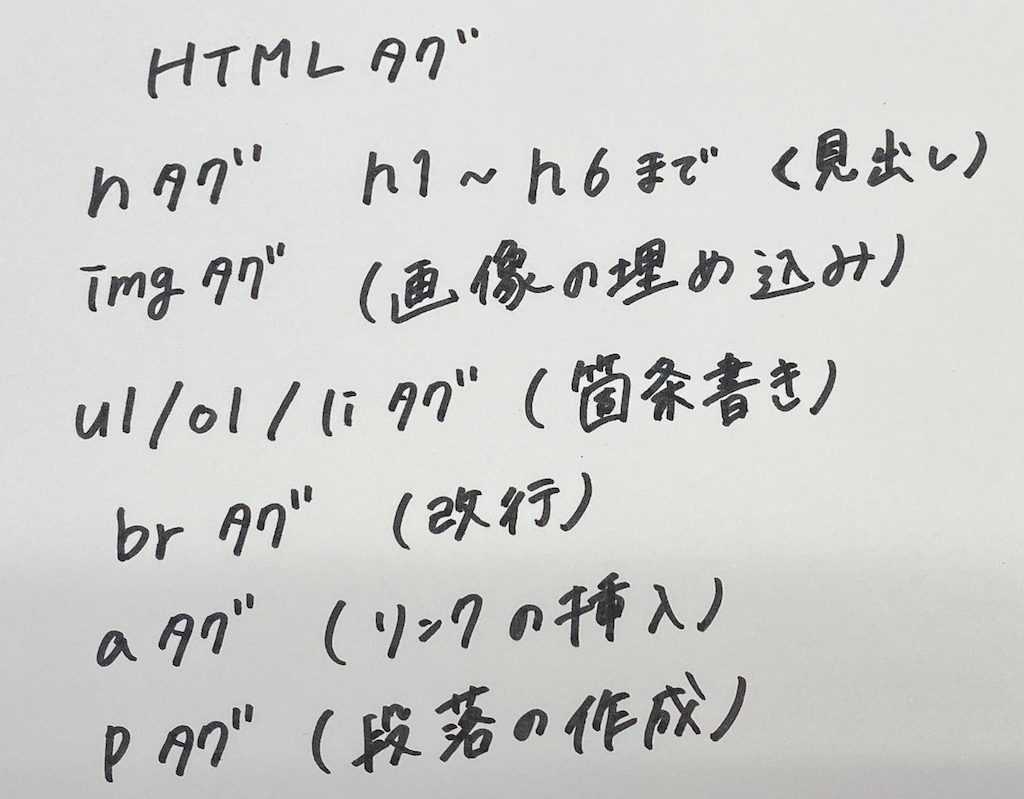 HTMLタグ
hタグ h1～h6まで (見出し)
imgタグ (画像の埋め込み)
ul/ol/liタグ (箇条書き)
brタグ (改行)
aタグ (リンクの挿入)
pタグ (段落の作成)